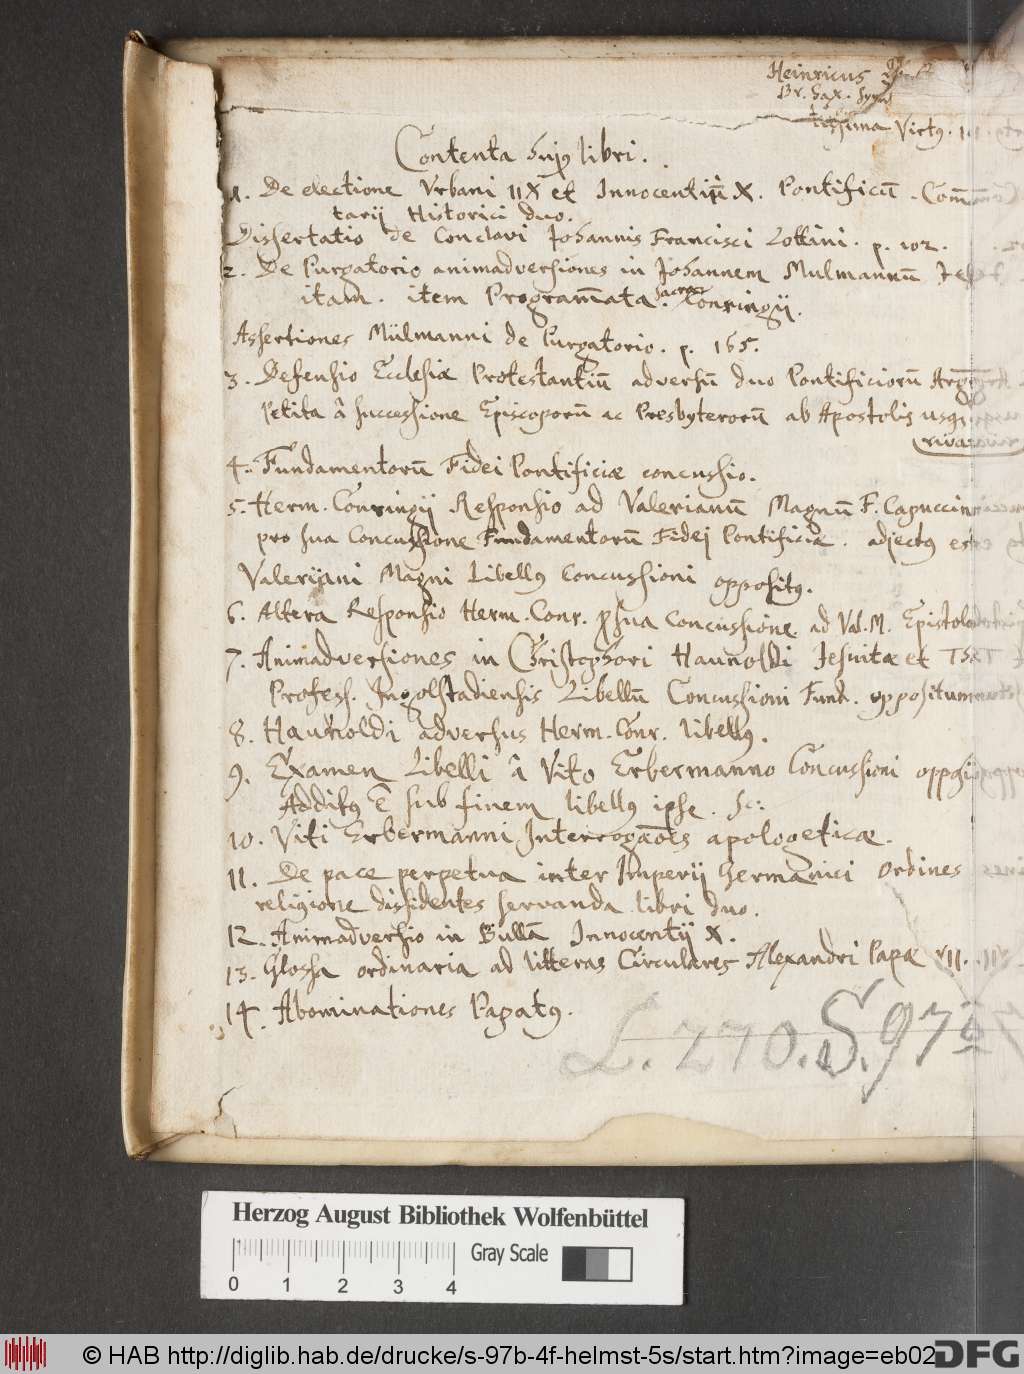 Heinricus
Br. Sax.
Virtus.
Contenta hujꝯ libri.
1. De electione Urbani IIX et Innocentii X. Pontificū Com̄en
tarij Historici duo.
Dissertatio de Conclavi Johannis Francisci Lottini. p. 102.
2. De Purgatorio animadversiones in Johannem Mulmannū Jesu
itam. item Program̄ata sacra Conringij.
Assertiones Mülmanni de Purgatorio. p. 165.
3. Defensio Ecclesiæ Protestantiū adversū duo Pontificiorū Arg
Petita â successione Episcoporū ac Presbyterorū ab Apostolis usqꝫ
rivatorum
4. Fundamentorū Fidei Pontificiæ concussio.
5. Herm. Conringij Responsio ad Valerianū Magnū F. Capuccin
pro sua Concussione Fundamentorū Fidej Pontificiæ. adjectꝯ est
Valerijani Magni Libellꝯ Concussioni oppositꝯ.
6. Altera Responsio Herm. Conr. p sua Concussione. ad Val. M. Epistolā
7. Animadversiones in Christophori Haunoldi Jesuitæ et
Profess. Ingolstadiensis Libellū Concussioni Fund. oppositum
8. Haunoldi adversus Herm. Conr. libellꝯ.
9. Examen Libelli â Vito Erbermanno Concussioni opposi
Additꝯ ē sub finem libellꝯ ipse. sc:
10. Viti Erbermanni Interrogaōes apologeticæ.
11. De pace perpetua inter Imperij Germanici Ordines
religione dissidentes servanda libri duo.
12. Animadversio in Bullā Innocentij X.
13. Glossa ordinaria ad litteras Circulares Alexandri Papæ VII.
14. Abominationes Papatꝯ.
L. 270. S. 97 b
Herzog August Bibliothek Wolfenbüttel
Gray Scale
0 1 2 3 4
© HAB http://diglib.hab.de/drucke/s-97b-4f-helmst-5s/start.htm?image=eb02
DFG